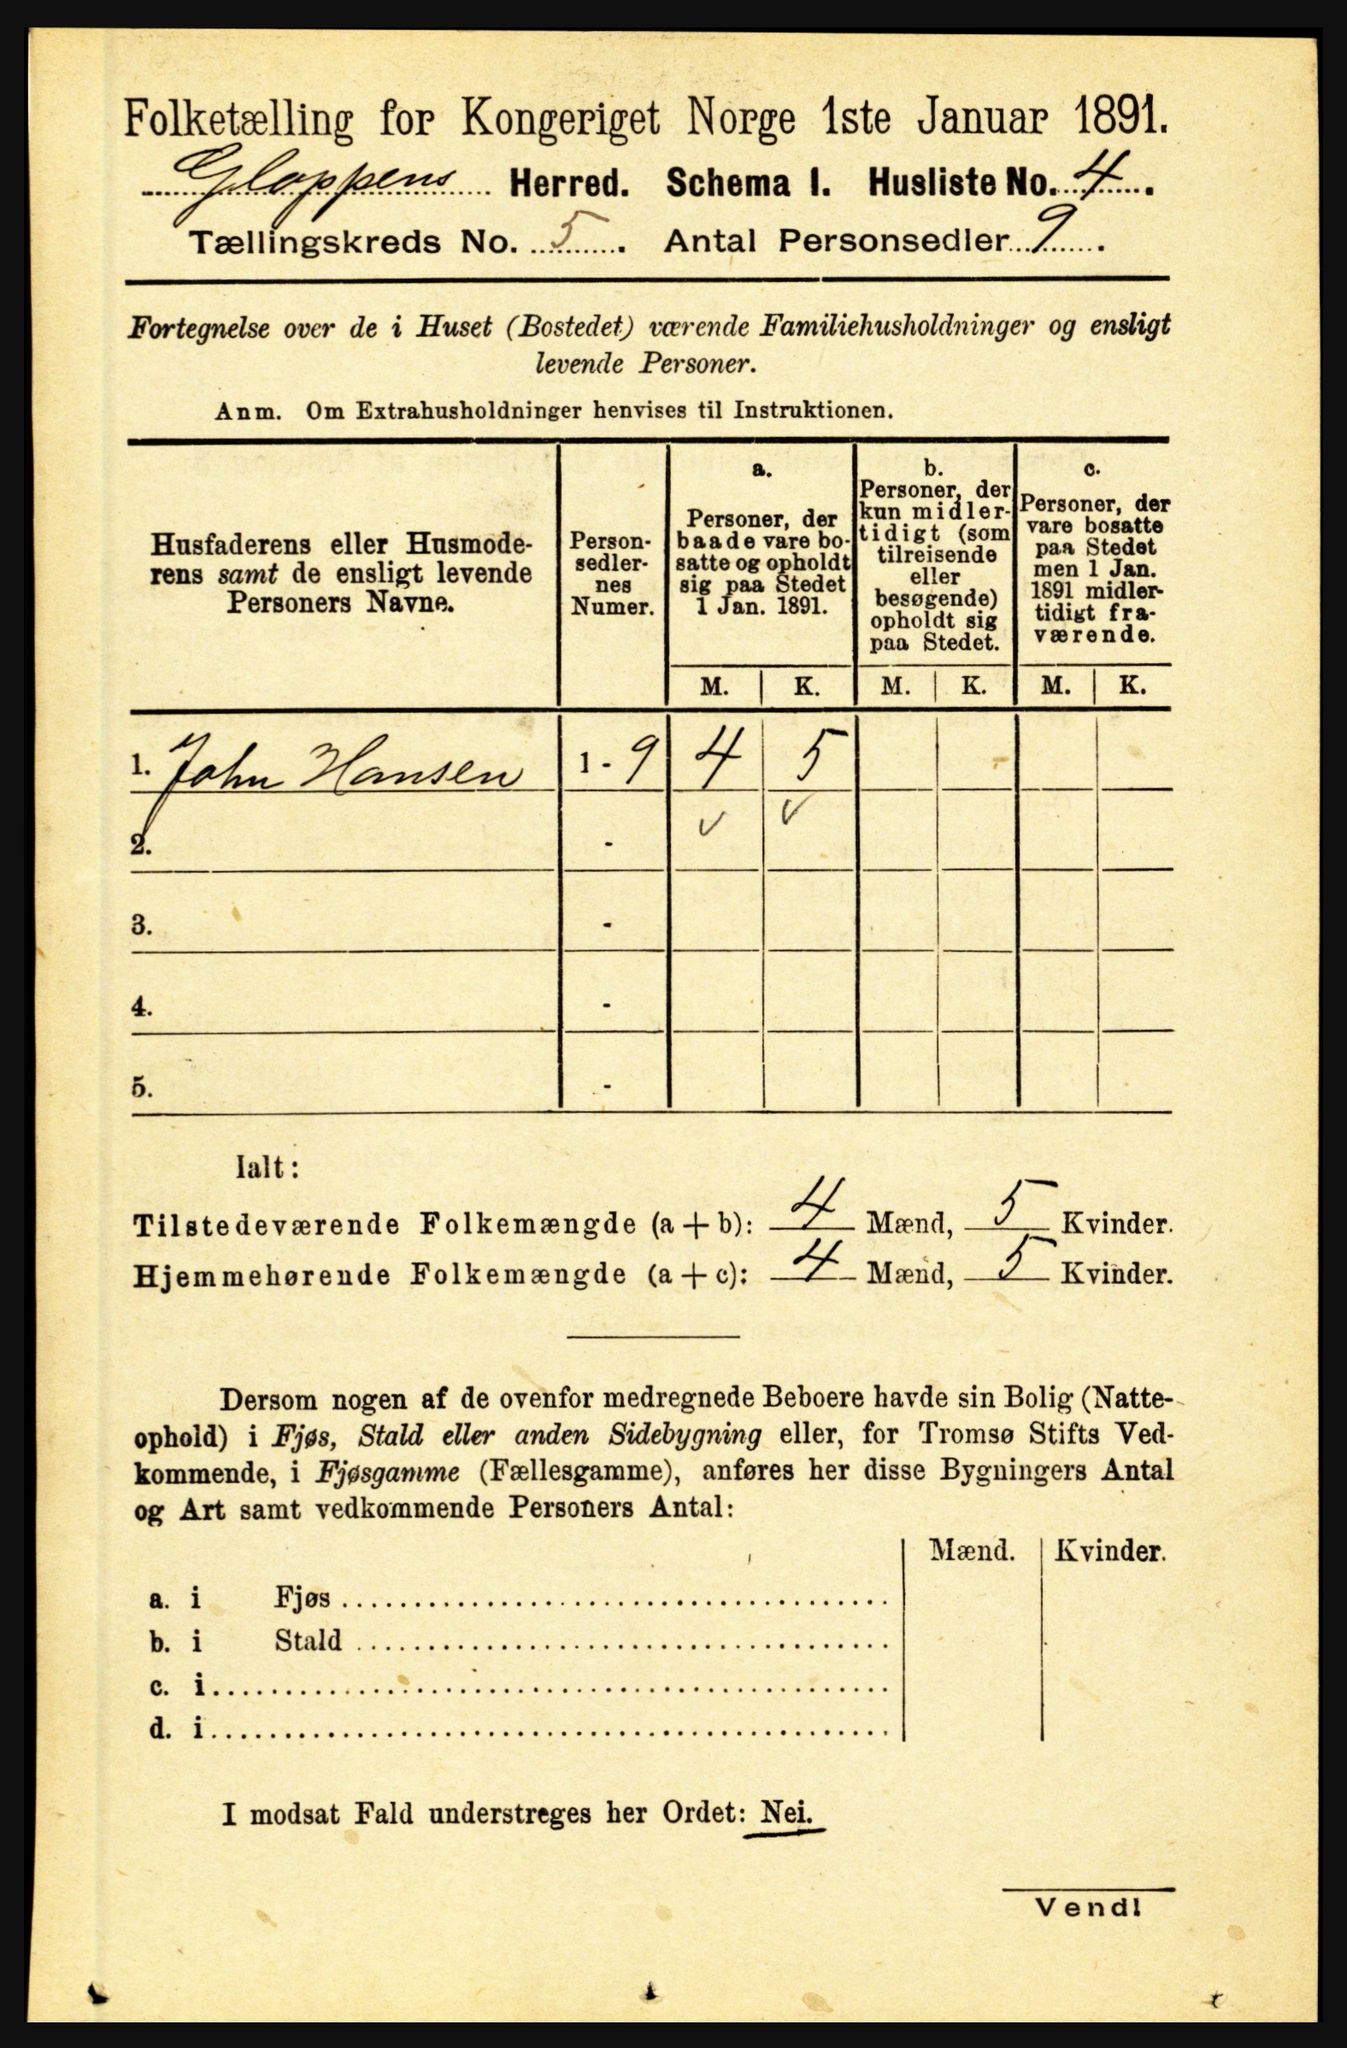 Folketælling for Kongeriget Norge 1ste Januar 1891.
Gloppens Herred. Schema I. Husliste No. 4.
Tællingskreds No. 5. Antal Personsedler 9.
Fortegnelse over de i Huset (Bostedet) værende Familiehusholdninger og ensligt
levende Personer.
Anm. Om Extrahusholdninger henvises til Instruktionen.
Husfaderens eller Husmode-
rens samt de ensligt levende
Personers Navne.
Person-
sedler-
nes
Numer.
a.
Personer, der
baade vare bo-
satte og opholdt
sig paa Stedet
1 Jan. 1891.
b.
Personer, der
kun midler-
tidigt (som
tilreisende
eller
besøgende)
opholdt sig
paa Stedet.
c.
Personer, der
vare bosatte
paa Stedet
men 1 Jan.
1891 midler-
tidigt fra-
værende.
M. K. M. K. M. K.
1. John Hansen 1 - 9 4 5
2. - ✓ ✓
3. -
4. -
5. -
Ialt:
Tilstedeværende Folkemængde (a + b): 4 Mænd, 5 Kvinder.
Hjemmehørende Folkemængde (a + c): 4 Mænd, 5 Kvinder.
Dersom nogen af de ovenfor medregnede Beboere havde sin Bolig (Natte-
ophold) i Fjøs, Stald eller anden Sidebygning eller, for Tromsø Stifts Ved-
kommende, i Fjøsgamme (Fællesgamme), anføres her disse Bygningers Antal
og Art samt vedkommende Personers Antal:
Mænd. Kvinder.
a. i Fjøs
b. i Stald
c. i
d. i
I modsat Fald understreges her Ordet: Nei.
Vend!